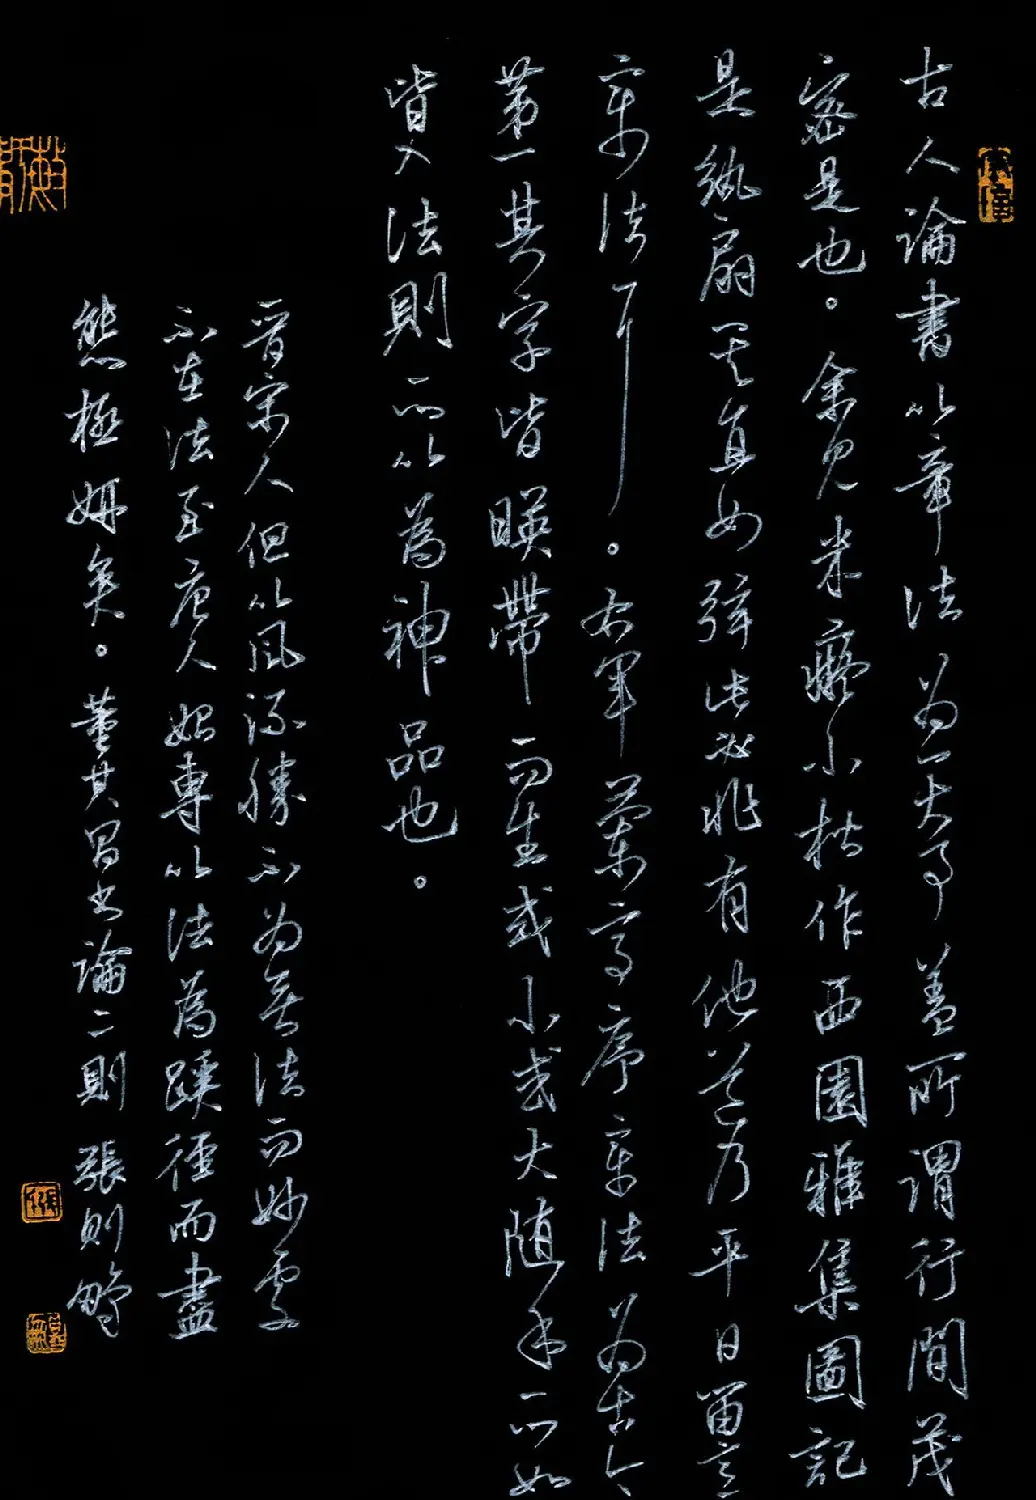 古人論書以章法為一大事蓋所謂行間茂
密是也。余見米癡小楷作西園雅集圖記
是紈扇其直如弦此必非有他道乃平日留意
章法耳。右軍蘭亭序章法為古今
第一其字皆暎帶而生或小或大随手所如
皆入法則所以為神品也。
晉宋人但以風流勝不為無法而妙處
不在法至唐人始專以法為蹊徑而盡
態極妍矣。董其昌書論二則 張則